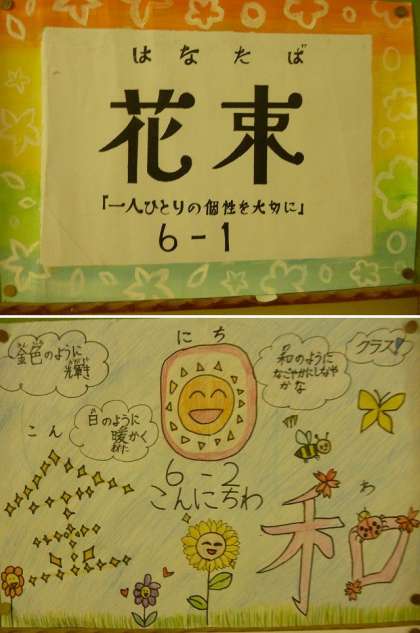 はなたば
花束
『一人ひとりの個性を大切に』
6-1
にち
金色のように
輝き
和のように
なごやかにしなや
かな
クラス!
日のように
暖かく
こん
金
6-2
こんにちわ
わ
和